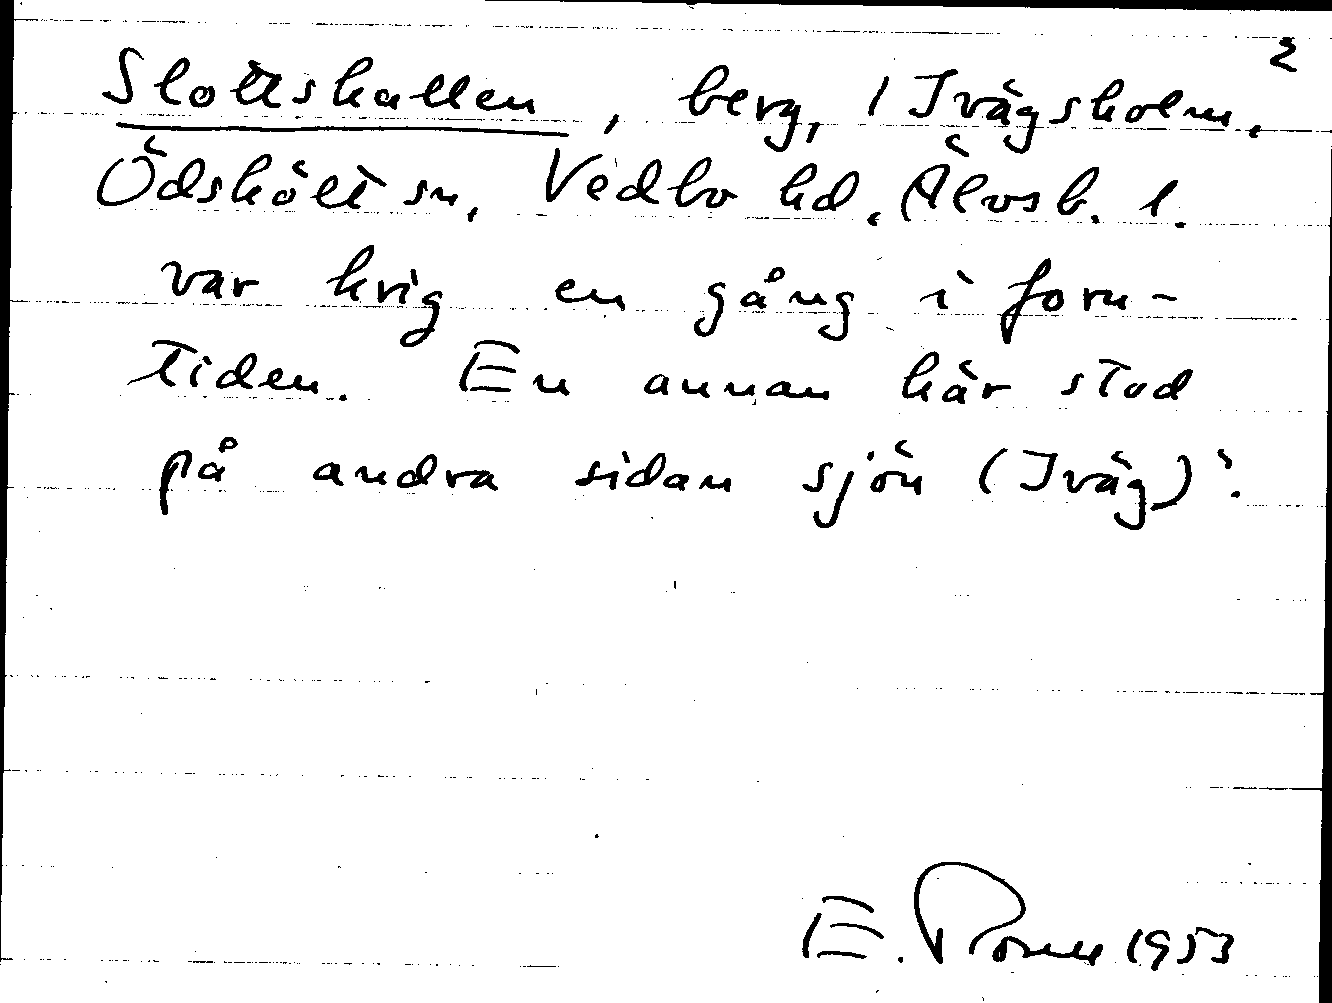 2
Slottshallen, berg, 1 Ivägsholm,
Ödskölt sn, Vedbo hd, Älvsb. l.
var krig en gång i forn-
tiden. En annan här stod
på andra sidan sjön (Iväg)".
E. 1953